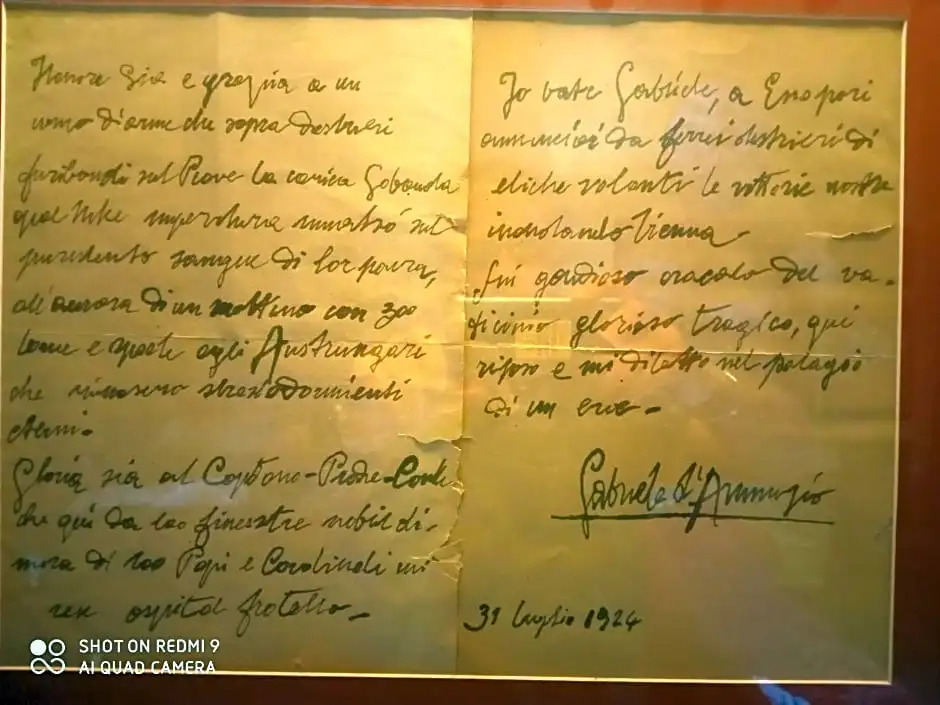 Honore sia e grazia a un
uomo d'arme che sopra destrieri
furibondi sul Piave la carica
qual Nike sul
sangue di lor
all'aurora di un mattino con 300
lame e spade agli Austrungari
che rimasero
eterni-
Gloria sia al Capitano-Prode-Conte
che qui da 100 finestre nobil di-
mora di 100 Papi e Cardinali mi
ospital fratello-
Io vate Gabriele, a
annunciai da ferrei destrieri di
eliche volanti le vittorie nostre
Vienna-
Fui gaudioso oracolo del va-
ticinio glorioso tragico, qui
riposo e mi diletto nel palagio
di un eroe-
Gabriele d'Annunzio
31 luglio 1924
SHOT ON REDMI 9
AI QUAD CAMERA